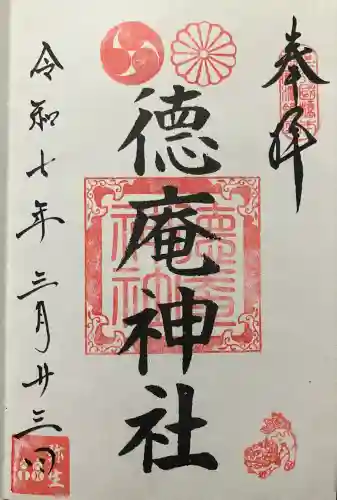 奉拝
徳庵神社
令和七年三月廿三日
弥生